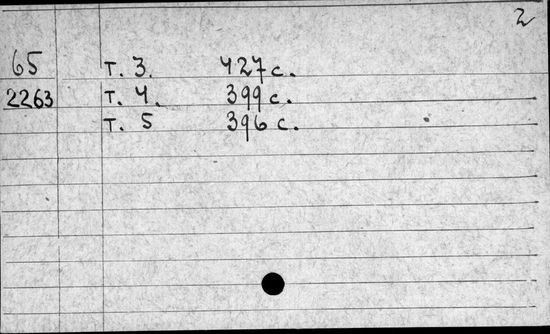 2
65 т. 3. 427 с.
2263 т. 4. 399 с.
т. 5 396 с.